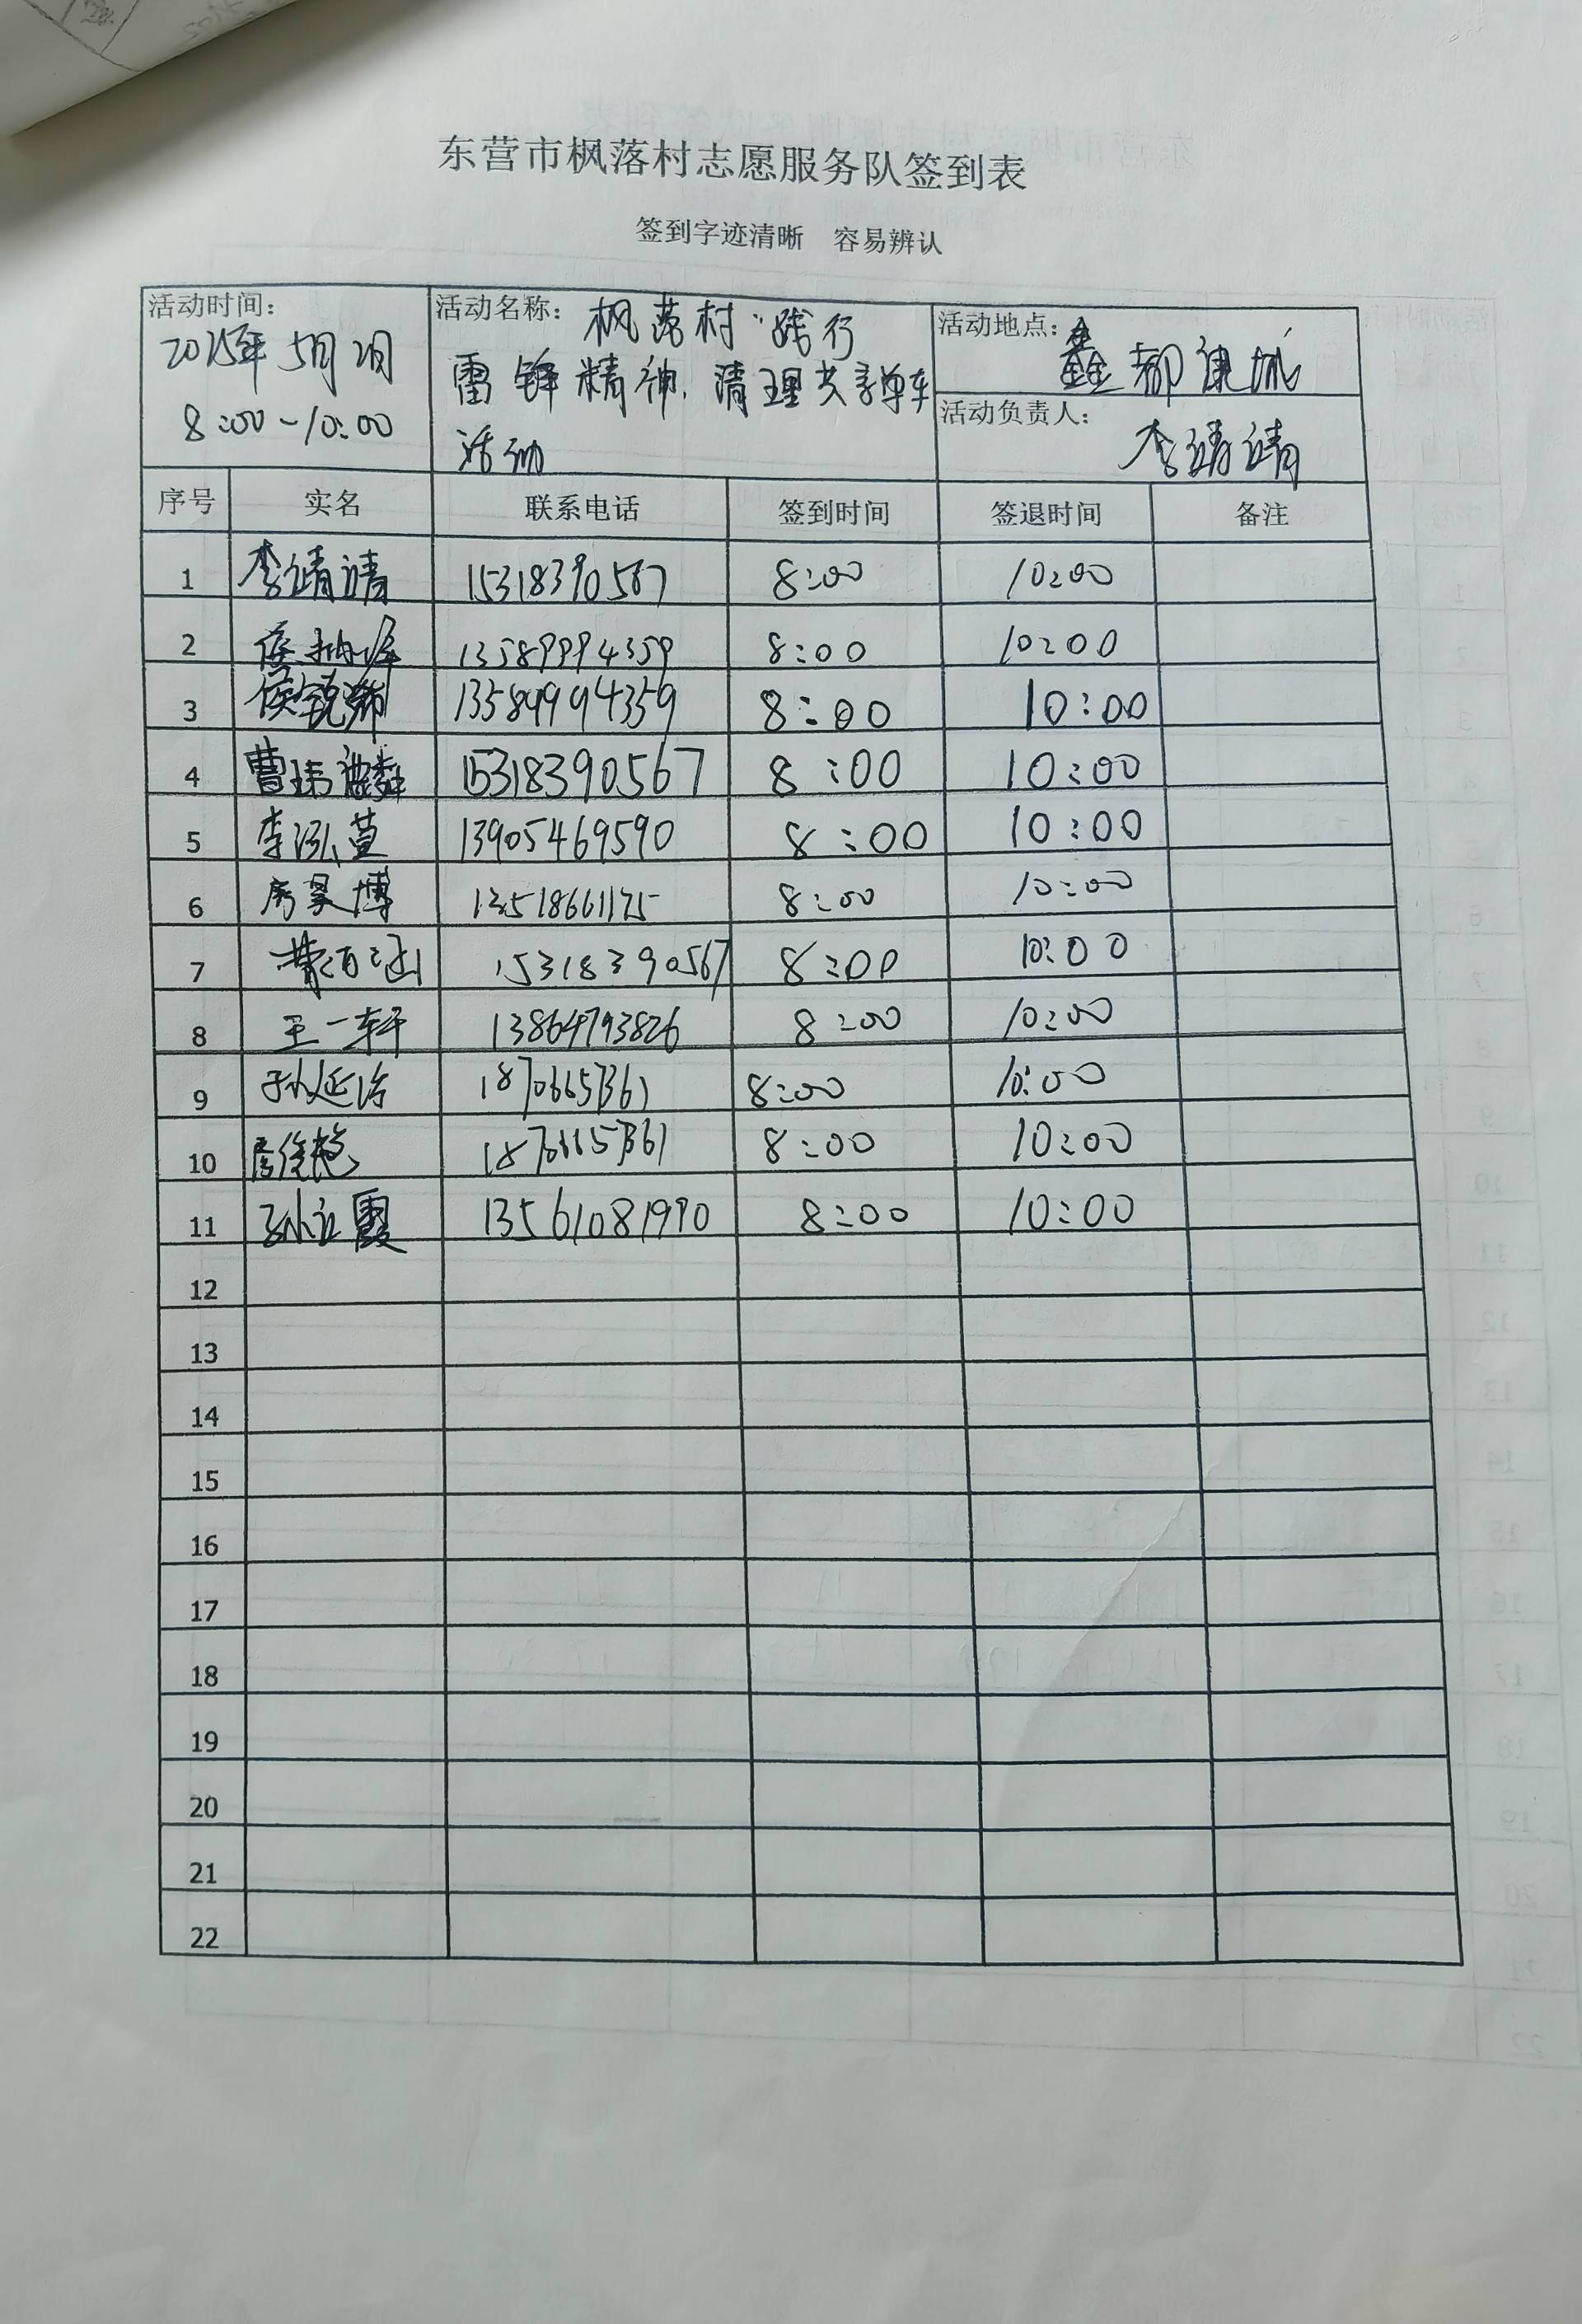 东营市枫落村志愿服务队签到表
签到字迹清晰 容易辨认
活动时间:
2025年5月2日
8:00-10:00
活动名称: 枫落村“践行
雷锋精神,清理共享单车
活动
活动地点: 鑫都康城
活动负责人: 李靖靖
序号 实名 联系电话 签到时间 签退时间 备注
1 李靖靖 15318390567 8:00 10:00
2 13589994359 8:00 10:00
3 侯锐瀚 13589994359 8:00 10:00
4 曹玮麟 15318390567 8:00 10:00
5 李泓萱 13905469590 8:00 10:00
6 房昊博 13518661175 8:00 10:00
7 15318390567 8:00 10:00
8 王一轩 13864793826 8:00 10:00
9 孙延治 8:00 10:00
10 8:00 10:00
11 孙立霞 13561081990 8:00 10:00
12
13
14
15
16
17
18
19
20
21
22